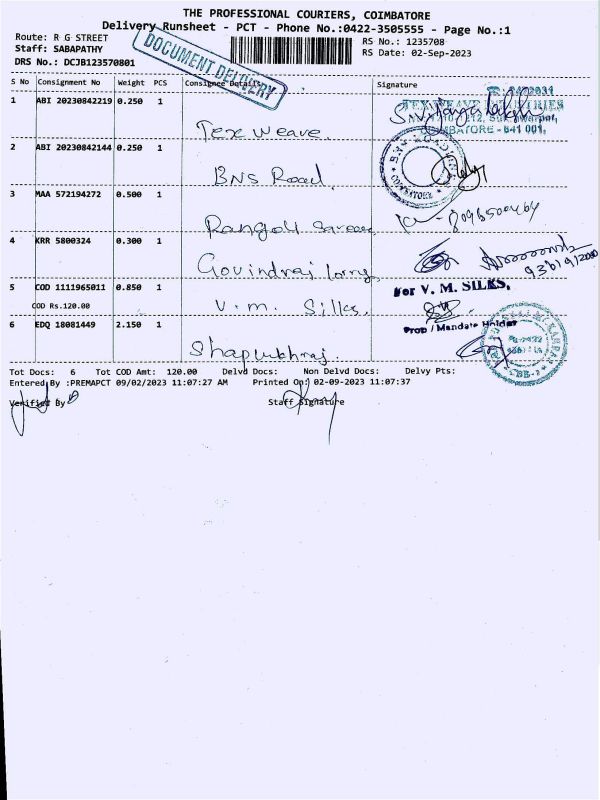 THE PROFESSIONAL COURIERS, COIMBATORE
Delivery Runsheet - PCT - Phone No.:0422-3505555 - Page No.:1
Route: R G STREET
RS No.: 1235708
Staff: SABAPATHY
RS Date: 02-Sep-2023
DRS No.: DCJB123570801
DOCUMENT DELIVERY
S No Consignment No Weight PCS Consignee Details Signature
1 ABI 20230842219 0.250 1
Tex Weave
COIMBATORE - 641 001.
2 ABI 20230842144 0.250 1
BNS Road
3 MAA 572194272 0.500 1
Rangoli Sarees
4 KRR 5800324 0.300 1
Govindraj lorry
5 COD 1111965011 0.850 1
For V. M. SILKS,
COD Rs.120.00
V.M. Silks.
6 EDQ 18081449 2.150 1
Prop / Mandate Holder
Tot Docs: 6 Tot COD Amt: 120.00 Delvd Docs: Non Delvd Docs: Delvy Pts:
Entered By :PREMAPCT 09/02/2023 11:07:27 AM Printed On: 02-09-2023 11:07:37
Verified By
Staff Signature